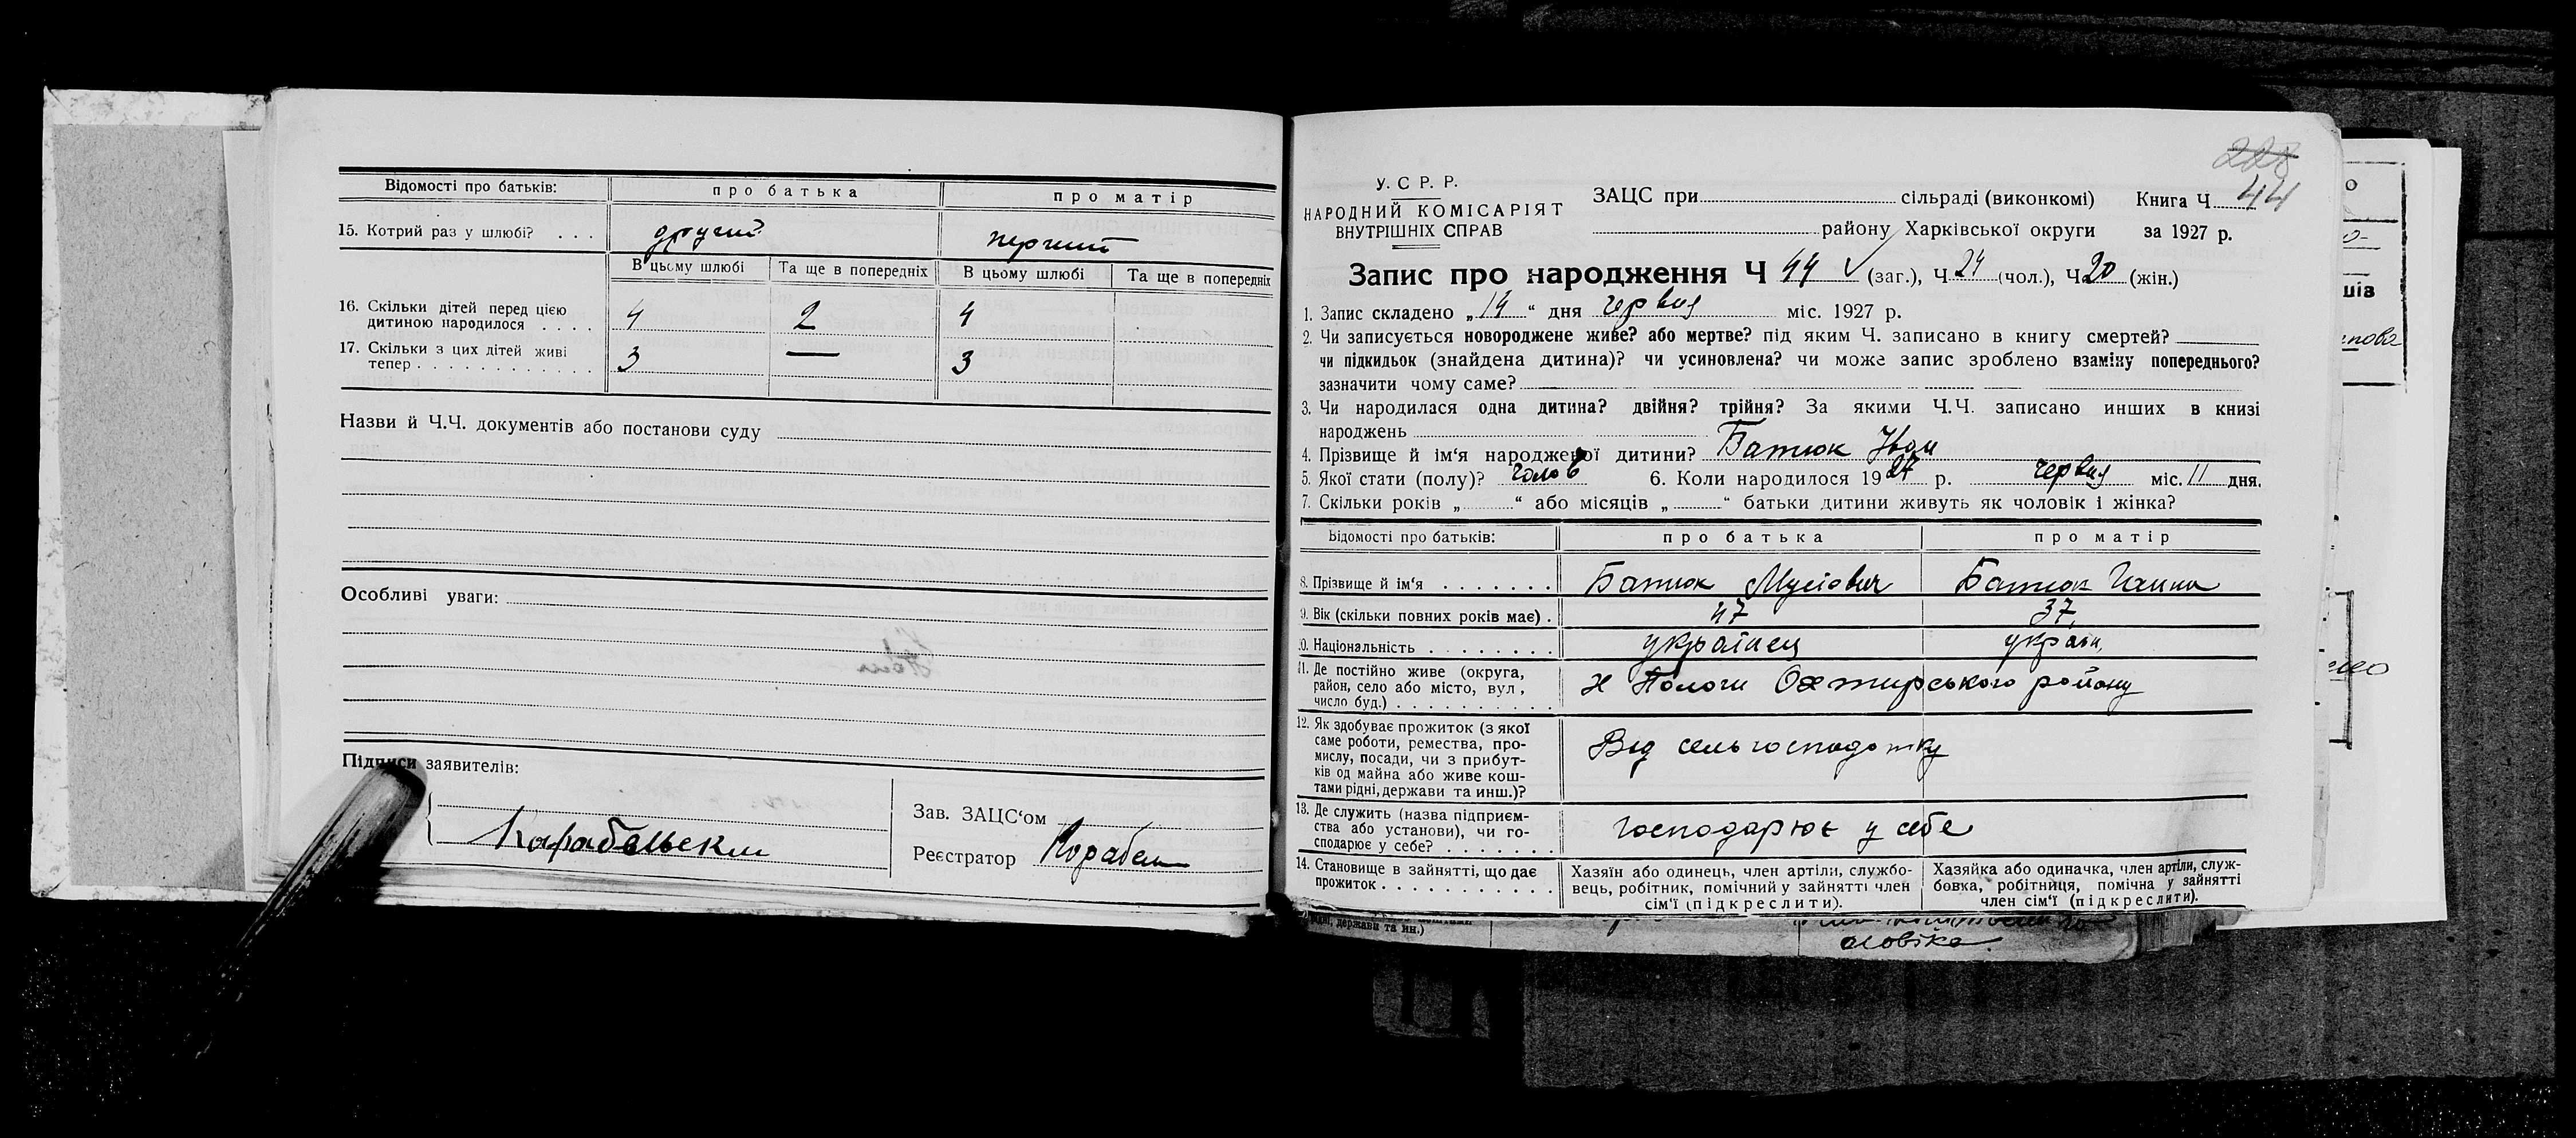 Відомості про батьків: про батька про матір
15. Котрий раз у шлюбі? . . . другий перший
В цьому шлюбі Та ще в попередніх В цьому шлюбі Та ще в попередніх
16. Скільки дітей перед цією
дитиною народилося . . . . 4 2 4
17. Скільки з цих дітей живі
тепер . . . . . . . . . . . . . 3 — 3
Назви й Ч.Ч. документів або постанови суду
Особливі уваги:
Підписи заявителів:
Зав. ЗАЦС'ом
Реєстратор Корабел
228
44
У. С Р. Р.
НАРОДНИЙ КОМІСАРІЯТ
ВНУТРІШНІХ СПРАВ
ЗАЦС при сільраді (виконкомі) Книга Ч
району Харківської округи за 1927 р.
Запис про народження Ч 44 (заг.), Ч 24 (чол.), Ч 20 (жін.)
1. Запис складено „14“ дня червня міс. 1927 р.
2. Чи записується новороджене живе? або мертве? під яким Ч. записано в книгу смертей?
чи підкидьок (знайдена дитина)? чи усиновлена? чи може запис зроблено взаміну попереднього?
зазначити чому саме?
3. Чи народилася одна дитина? двійня? трійня? За якими Ч.Ч. записано инших в книзі
народжень
4. Прізвище й ім'я народженої дитини? Батюк Іван
5. Якої стати (полу)? чолов 6. Коли народилося 1927 р. червня міс. 11 дня.
7. Скільки років „ “ або місяців „ “ батьки дитини живуть як чоловік і жінка?
Відомості про батьків: про батька про матір
8. Прізвище й ім'я . . . . . . . Батюк Мусієвич Батюк Ганна
9. Вік (скільки повних років має) . 47 37
10. Національність . . . . . . . . українец україн,
11. Де постійно живе (округа,
район, село або місто, вул,
число буд.) . . . . . . . . . . . Н Пологи Охтирського району
12. Як здобуває прожиток (з якої
саме роботи, ремества, про-
мислу, посади, чи з прибут-
ків од майна або живе кош-
тами рідні, держави та инш.)?
Від сельгосподатку
13. Де служить (назва підприєм-
ства або установи), чи го-
сподарює у себе? . . . . . . . Господарює у себе
14. Становище в зайнятті, що дає
прожиток . . . . . . . . . . . .
Хазяїн або одинець, член артіли, службо-
вець, робітник, помічний у зайнятті член
сім'ї (підкреслити).
Хазяйка або одиначка, член артіли, служ-
бовка, робітниця, помічна у зайнятті
член сім'ї (підкреслити).
рідні, держави та ин.)